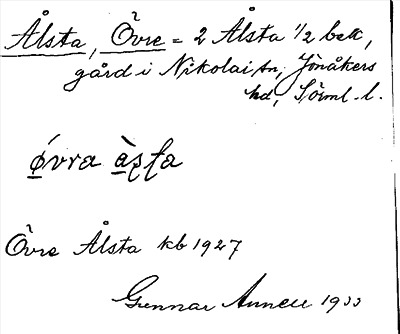 Ålsta, Övre = 2 Ålsta 1/2 bek,
gård i Nikolai sn, Jönåkers
hd, Sörml. l.
ǿvra àṣṭa
Övre Ålsta kb 1927
Gunnar Annell 1933